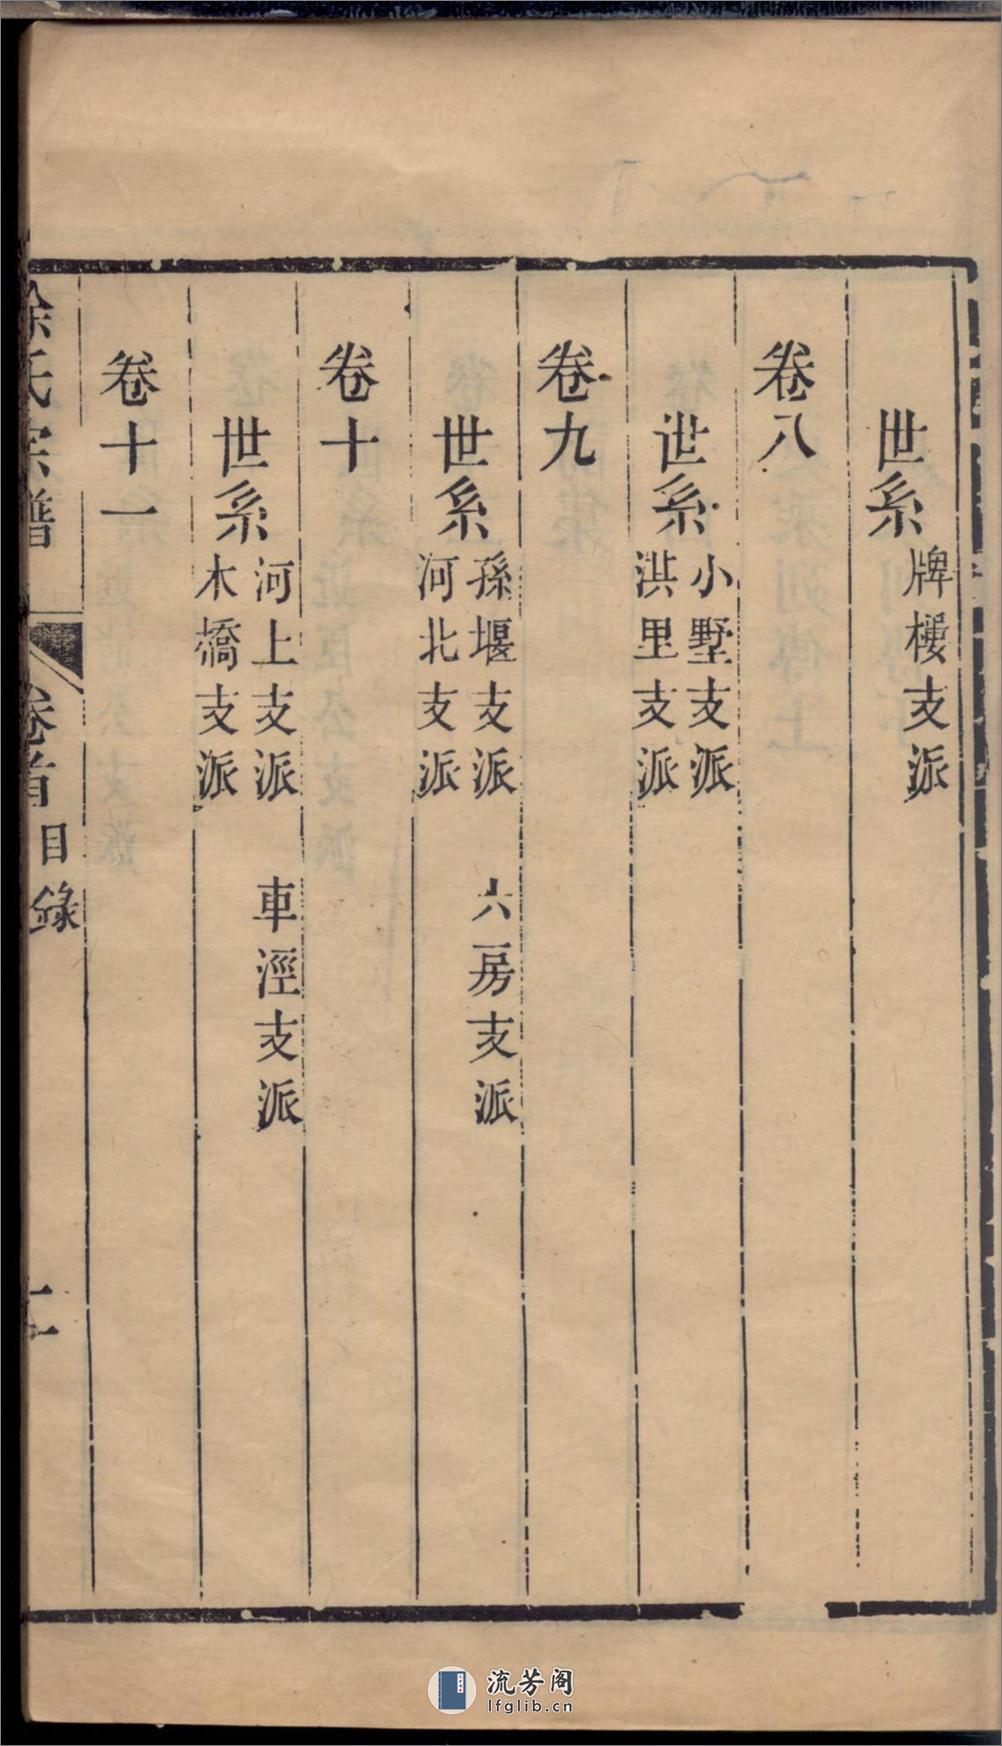 世系 牌樓支派
卷八
世系 小墅支派
洪里支派
卷九
世系 孫堰支派 六房支派
河北支派
卷十
世系 河上支派 車涇支派
木橋支派
卷十一
徐氏宗譜 卷首 目錄
流芳阁
lfglib.cn